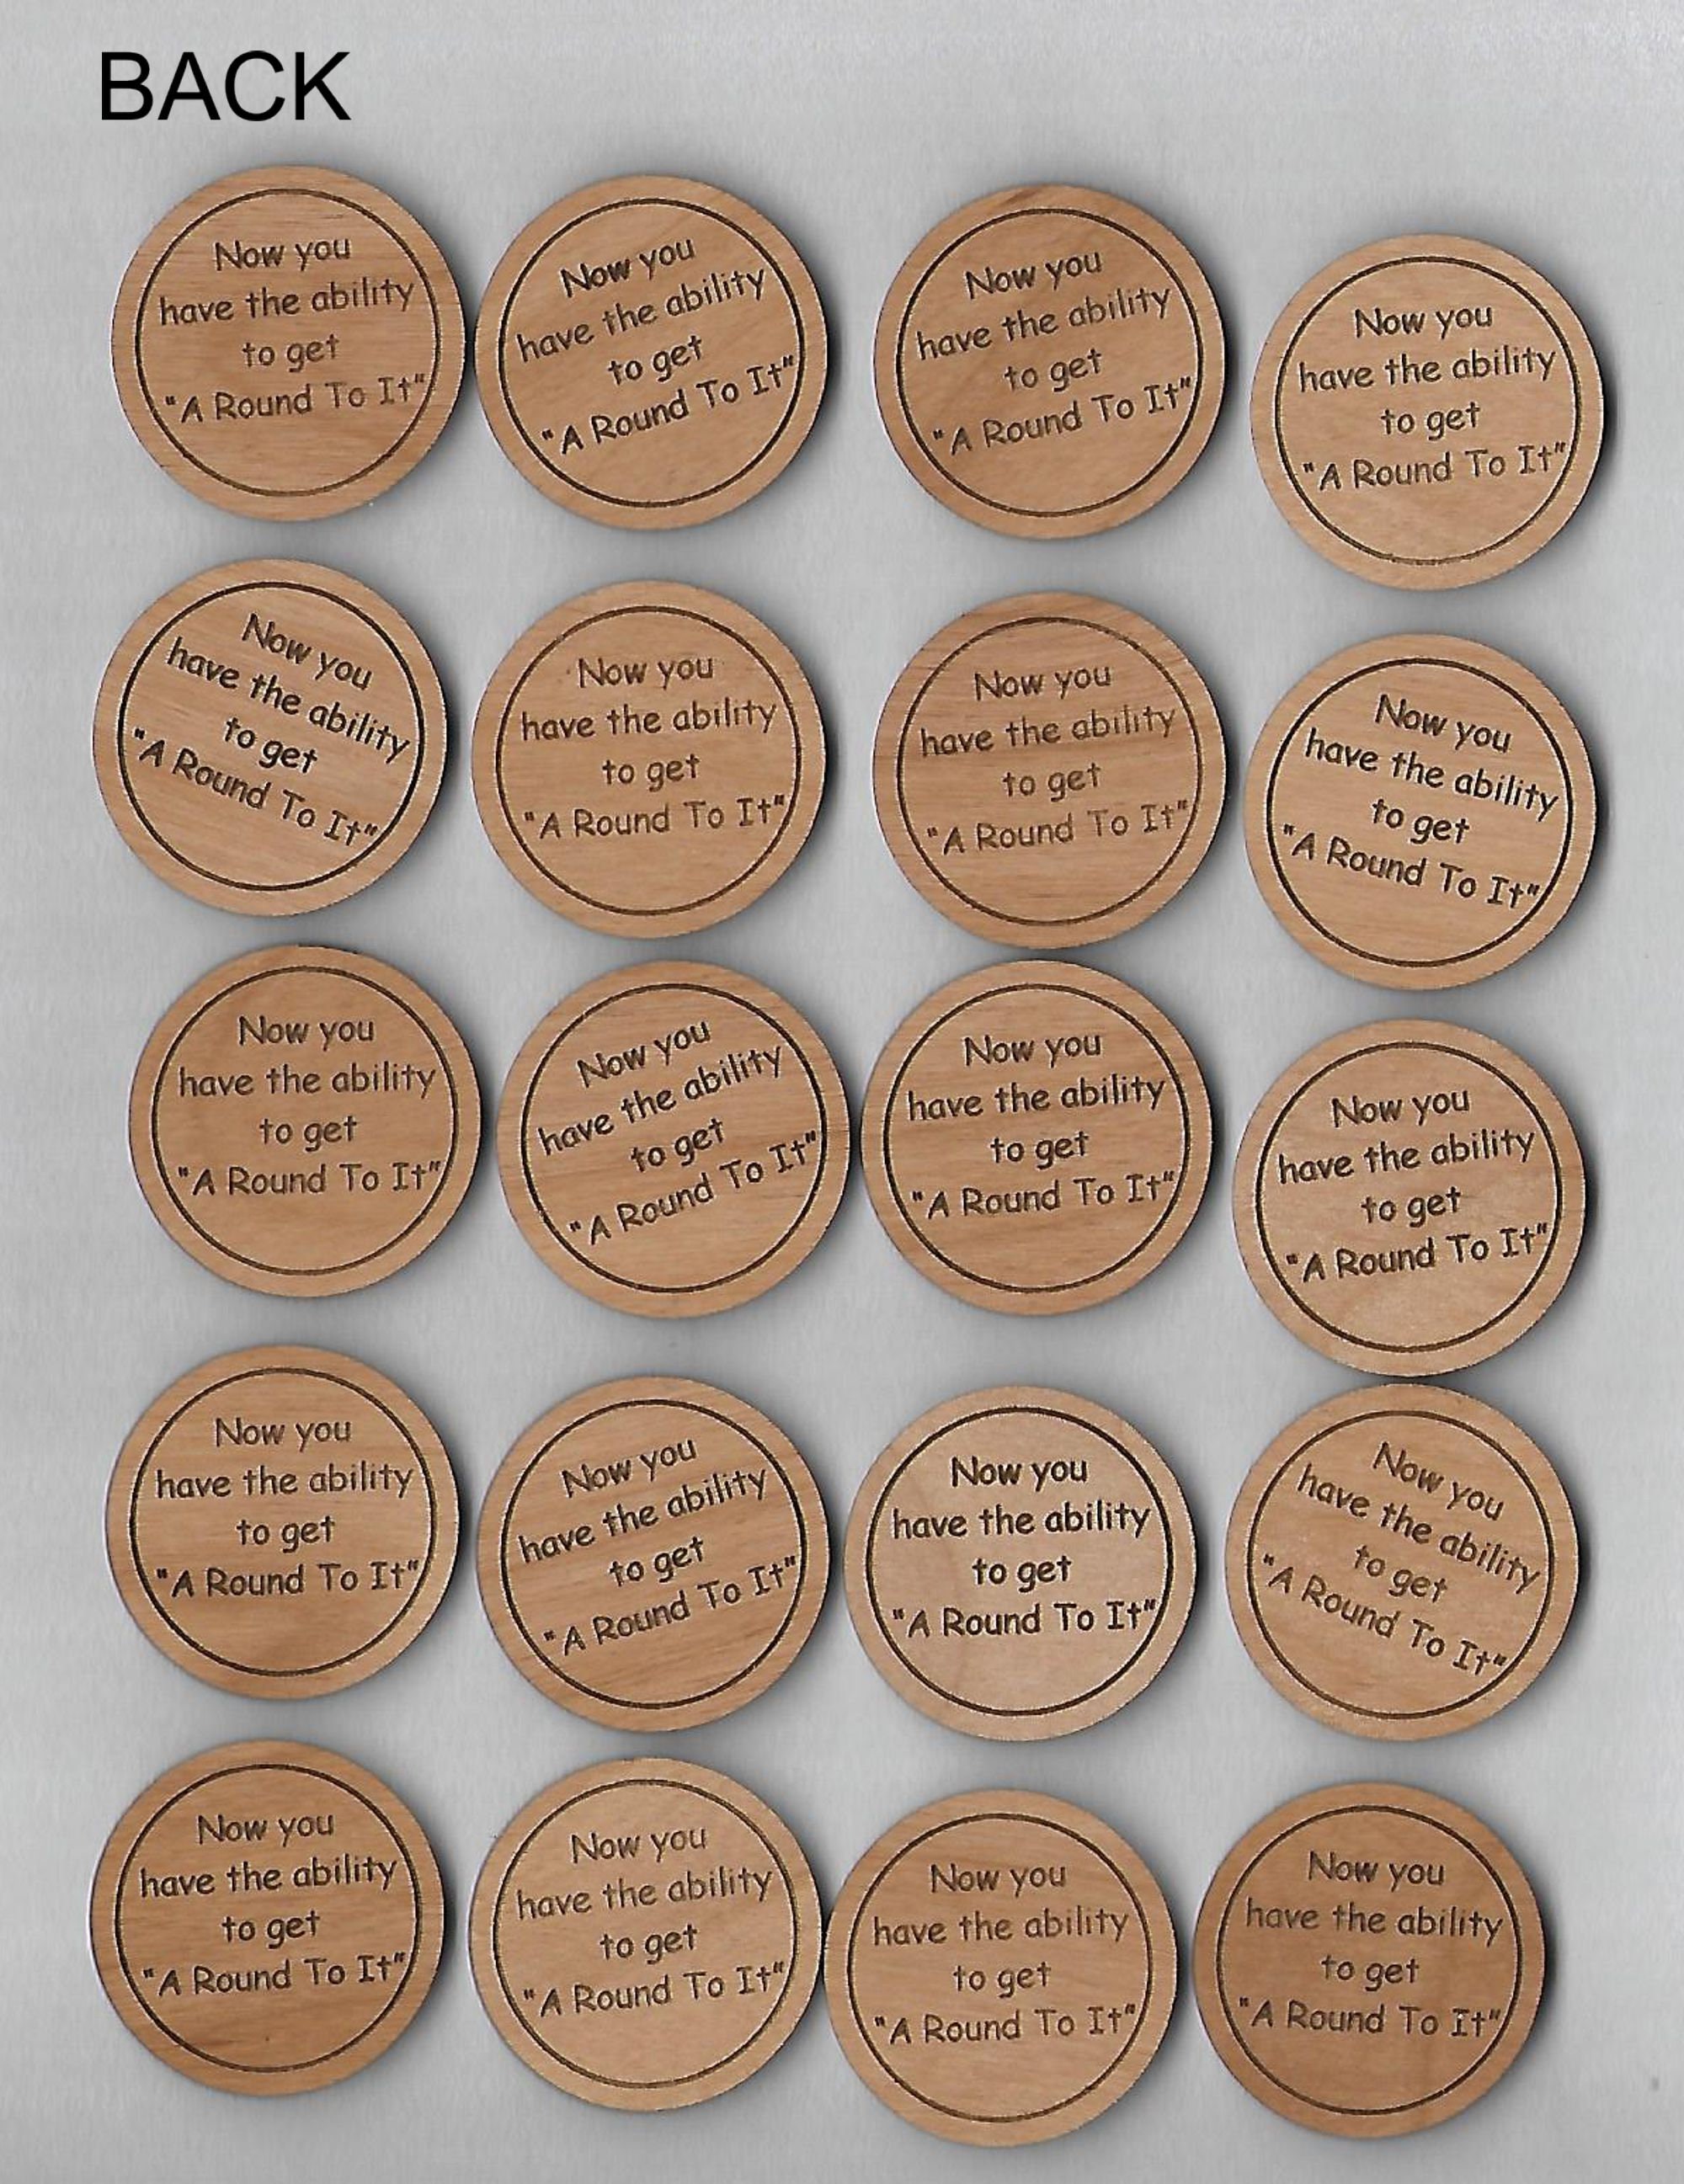 BACK
Now you
have the ability
to get
"A Round To It"
Now you
have the ability
to get
"A Round To It"
Now you
have the ability
to get
"A Round To It"
Now you
have the ability
to get
"A Round To It"
Now you
have the ability
to get
"A Round To It"
Now you
have the ability
to get
"A Round To It"
Now you
have the ability
to get
"A Round To It"
Now you
have the ability
to get
"A Round To It"
Now you
have the ability
to get
"A Round To It"
Now you
have the ability
to get
"A Round To It"
Now you
have the ability
to get
"A Round To It"
Now you
have the ability
to get
"A Round To It"
Now you
have the ability
to get
"A Round To It"
Now you
have the ability
to get
"A Round To It"
Now you
have the ability
to get
"A Round To It"
Now you
have the ability
to get
"A Round To It"
Now you
have the ability
to get
"A Round To It"
Now you
have the ability
to get
"A Round To It"
Now you
have the ability
to get
"A Round To It"
Now you
have the ability
to get
"A Round To It"